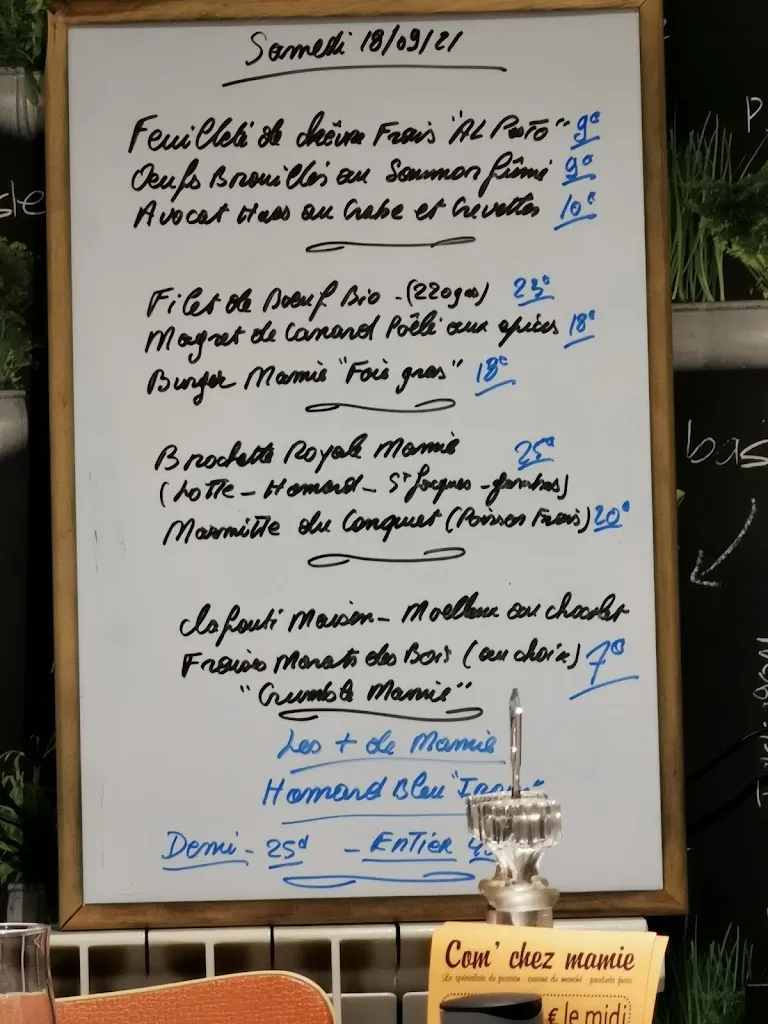 Samedi 18/09/21
Feuilleté de chèvre Frais "AL PESTO" 9€
Oeufs Brouillés au Saumon fûmé 9€
Avocat Hass au Crabe et Crevettes 10€
Filet de Boeuf Bio - (220grs) 23€
Magret de Canard Poêlé aux épices 18€
Burger Mamie "Foie gras" 18€
Brochette Royale Mamie 25€
(Lotte - Homard - St Jacques - gambas)
Marmitte du Conquet (Poisson Frais) 20€
Clafouti Maison - Moelleux au chocolat
Fraises Marats des Bois (au choix) 7€
"Crumble Mamie"
Les + de Mamie
Homard Bleu
Demi - 25€ - ENTIER
Com' chez mamie
€ le midi
bas